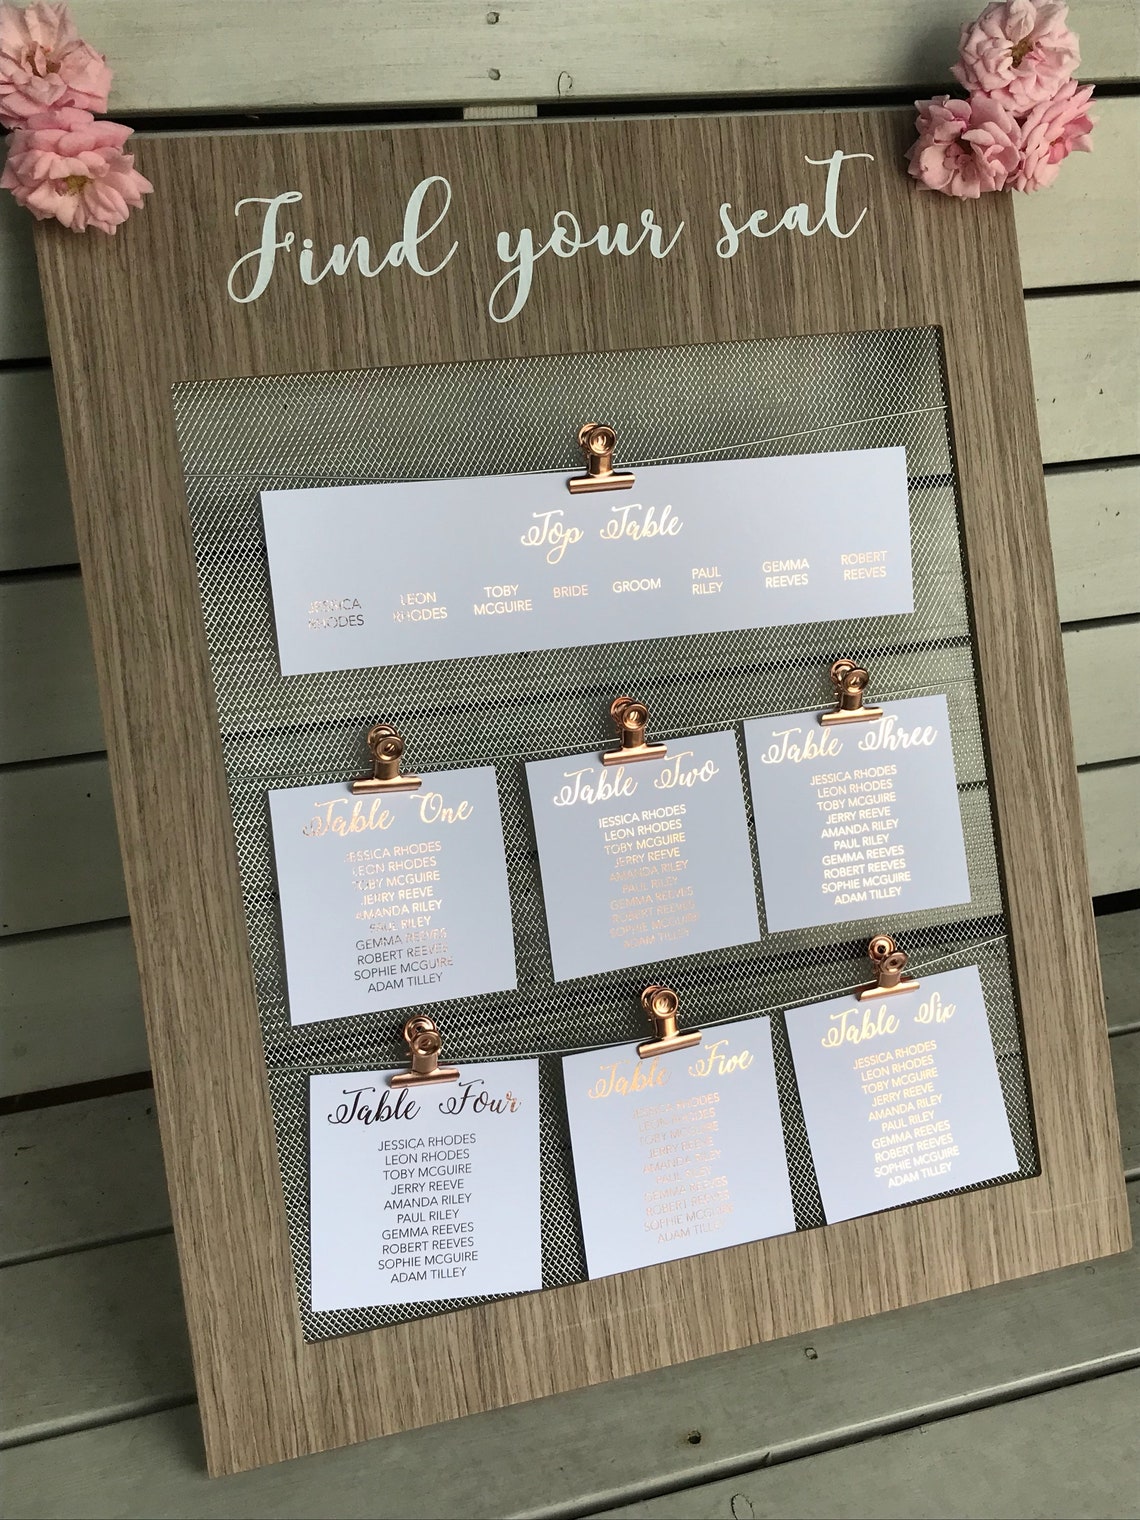 Find your seat
Top Table
JESSICA RHODES
LEON RHODES
TOBY MCGUIRE
BRIDE
GROOM
PAUL RILEY
GEMMA REEVES
ROBERT REEVES
Table One
JESSICA RHODES
LEON RHODES
TOBY MCGUIRE
JERRY REEVE
AMANDA RILEY
PAUL RILEY
GEMMA REEVES
ROBERT REEVES
SOPHIE MCGUIRE
ADAM TILLEY
Table Two
JESSICA RHODES
LEON RHODES
TOBY MCGUIRE
JERRY REEVE
AMANDA RILEY
PAUL RILEY
GEMMA REEVES
ROBERT REEVES
SOPHIE MCGUIRE
ADAM TILLEY
Table Three
JESSICA RHODES
LEON RHODES
TOBY MCGUIRE
JERRY REEVE
AMANDA RILEY
PAUL RILEY
GEMMA REEVES
ROBERT REEVES
SOPHIE MCGUIRE
ADAM TILLEY
Table Four
JESSICA RHODES
LEON RHODES
TOBY MCGUIRE
JERRY REEVE
AMANDA RILEY
PAUL RILEY
GEMMA REEVES
ROBERT REEVES
SOPHIE MCGUIRE
ADAM TILLEY
Table Five
JESSICA RHODES
LEON RHODES
TOBY MCGUIRE
JERRY REEVE
AMANDA RILEY
PAUL RILEY
GEMMA REEVES
ROBERT REEVES
SOPHIE MCGUIRE
ADAM TILLEY
Table Six
JESSICA RHODES
LEON RHODES
TOBY MCGUIRE
JERRY REEVE
AMANDA RILEY
PAUL RILEY
GEMMA REEVES
ROBERT REEVES
SOPHIE MCGUIRE
ADAM TILLEY